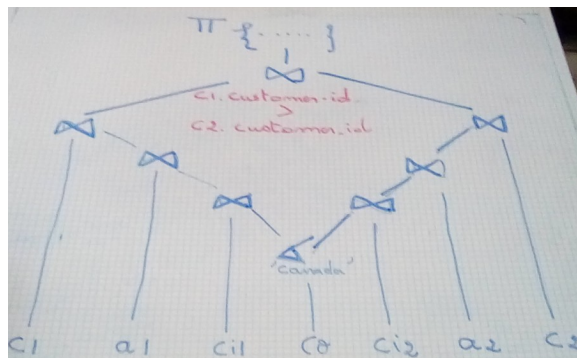 π {.....}
c1.customer-id
>
c2.customer.id
'canada'
c1 a1 ci1 co ci2 a2 c2